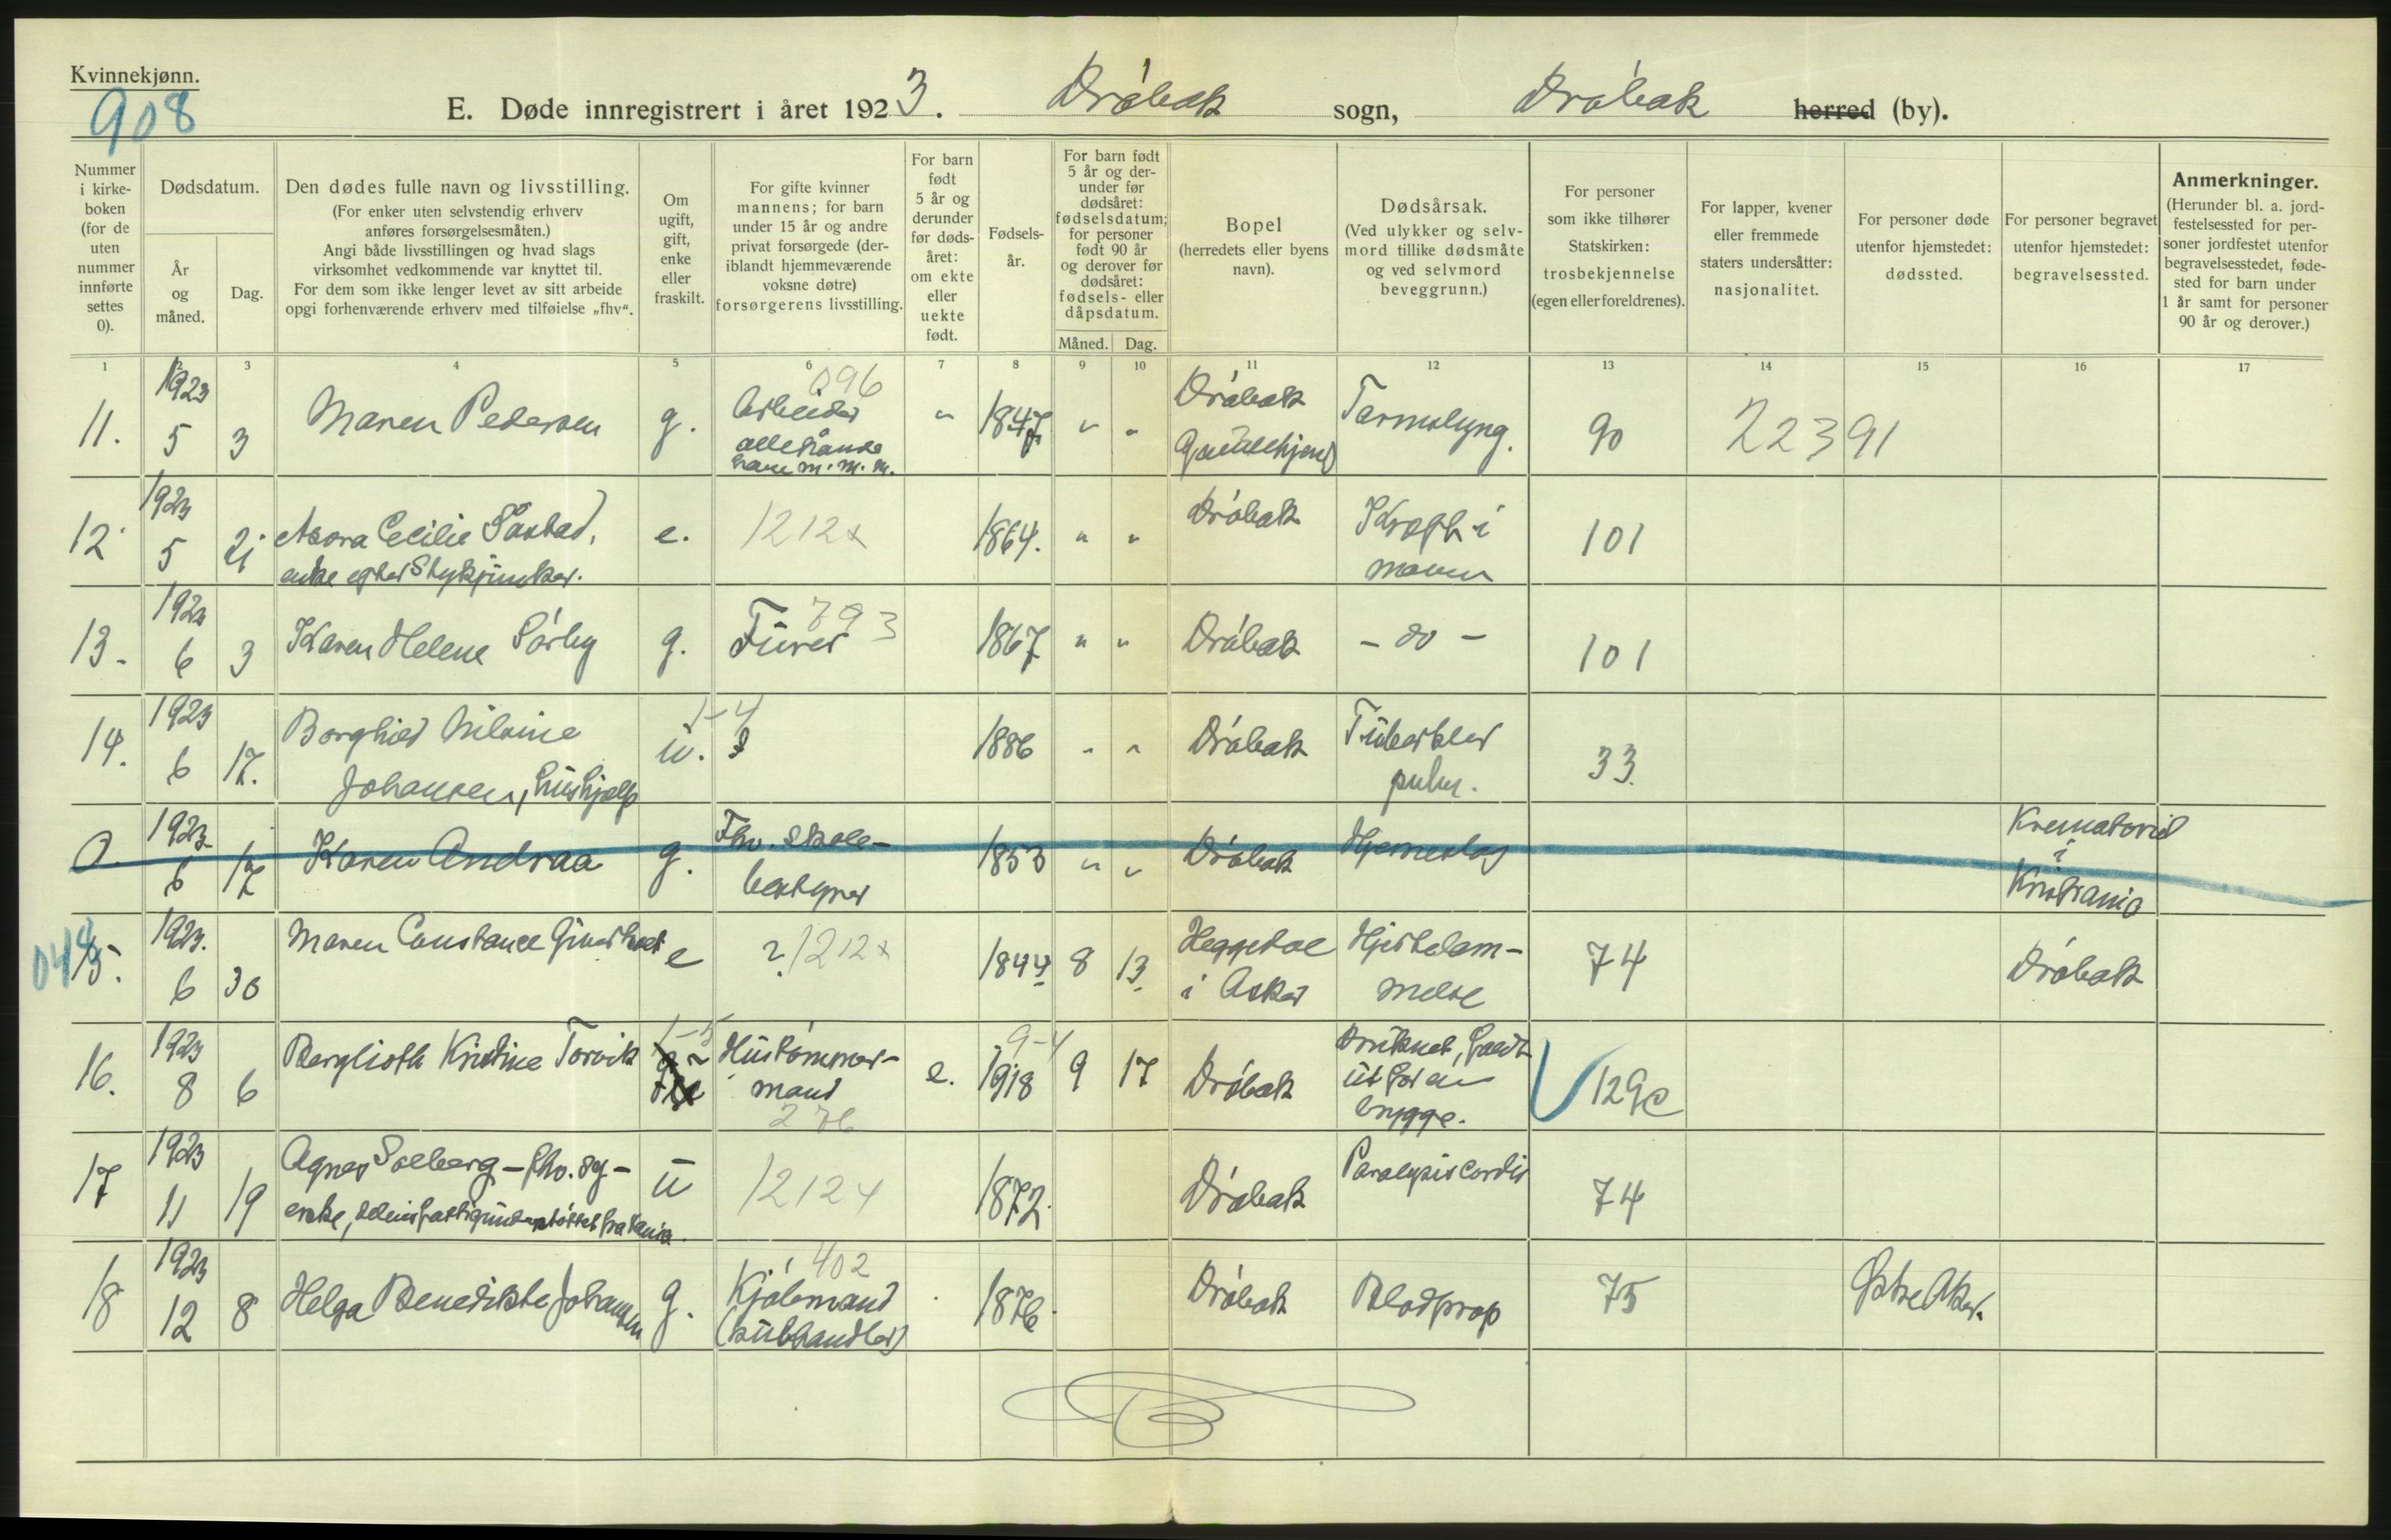 Kvinnekjønn.
908
E. Døde innregistrert i året 1923. Drøbak sogn, Drøbak herred (by).
Nummer i kirkeboken (for de uten nummer innførte settes 0).
Dødsdatum.
År og måned.
Dag.
Den dødes fulle navn og livsstilling.
(For enker uten selvstendig erhverv anføres forsørgelsesmåten.)
Angi både livsstillingen og hvad slags virksomhet vedkommende var knyttet til.
For dem som ikke lenger levet av sitt arbeide opgi forhenværende erhverv med tilføielse „fhv“.
Om ugift, gift, enke eller fraskilt.
For gifte kvinner mannens; for barn under 15 år og andre privat forsørgede (deriblandt hjemmeværende voksne døtre) forsørgerens livsstilling.
For barn født 5 år og derunder før dødsåret: om ekte eller uekte født.
Fødselsår.
For barn født 5 år og derunder før dødsåret: fødselsdatum; for personer født 90 år og derover før dødsåret: fødsels- eller dåpsdatum.
Måned. Dag.
Bopel (herredets eller byens navn).
Dødsårsak. (Ved ulykker og selvmord tillike dødsmåte og ved selvmord beveggrunn.)
For personer som ikke tilhører Statskirken: trosbekjennelse (egen eller foreldrenes).
For lapper, kvener eller fremmede staters undersåtter: nasjonalitet.
For personer døde utenfor hjemstedet: dødssted.
For personer begravet utenfor hjemstedet: begravelsessted.
Anmerkninger. (Herunder bl. a. jordfestelsessted for personer jordfestet utenfor begravelsesstedet, fødested for barn under 1 år samt for personer 90 år og derover.)
1 3 4 5 6 7 8 9 10 11 12 13 14 15 16 17
11. 1923 5 3 Maren Pedersen g. 096 Arbeider allehånde m. m. " 1847 " " Drøbak Gamlehjem Tarmslyng. 90 22391
12. 1923 5 21 Cecilie Såstad, enke efter Stykjunker. e. 1212x 1864. " " Drøbak Kræft i maven 101
13. 1923 6 3 Karen Helene Sørby g. 793 Fürer 1867 " " Drøbak - do - 101
14. 1923 6 17. Borghild Nilsine Johansen, hushjælp u. 1-4 1886 " " Drøbak Tuberkler pulm. 33.
0. 1923 6 17 Karen Andraa g. Fhv. skolebestyrer 1853 " " Drøbak Hjerneslag Krematoriet i Kristiania
048 15. 1923. 6 30 Maren Constance e ? 1212x 1844 8 13. Heggedal i Asker Hjertelammelse 74 Drøbak
16. 1923 8 6 Berglioth Kristine Torvik 1-5 Hustømmermand 276 e. 9-4 1918 9 17 Drøbak Druknet, faldt ut for en brygge. 129c
17 1923 11 19 Agnes Solberg - fhv. syerske, u 12124 1872. Drøbak Paralysis cordis 74
18 1923 12 8 Helga Benedikte Johansen g. 402 Kjøbmand (kulhandler) 1876 Drøbak Blodprop 75 Østre Aker.